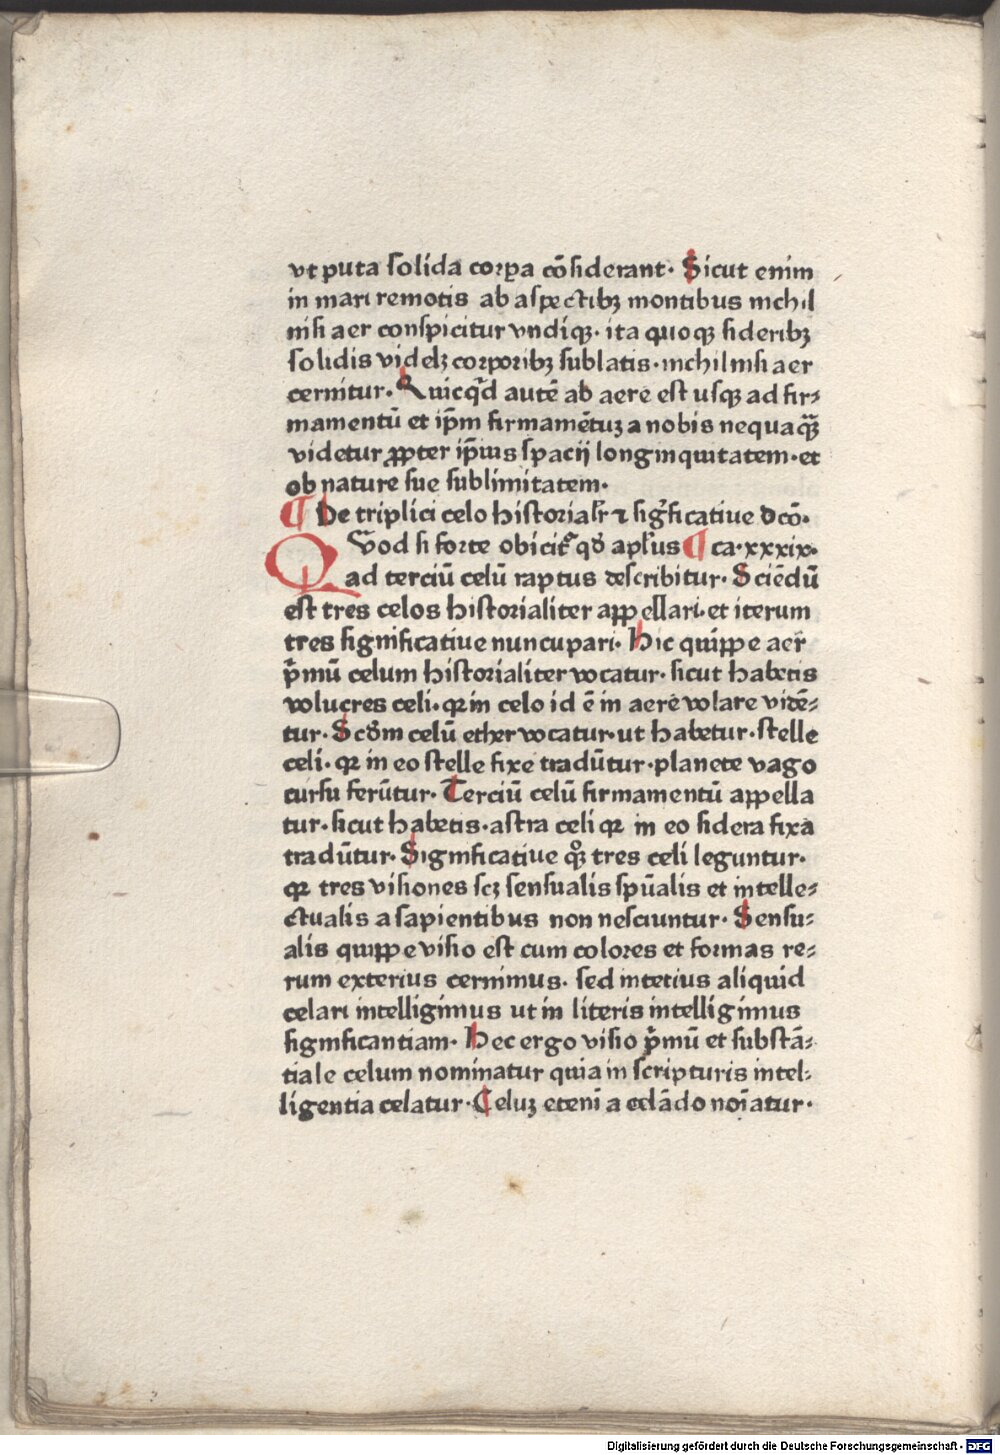 vt puta solida corꝑa cōsiderant· Sicut enim
in mari remotis ab aspectibꝫ montibus nichil
nisi aer conspicitur vndiqꝫ· ita quoqꝫ sideribꝫ
solidis videlꝫ corporibꝫ sublatis·nichil nisi aer
cernitur· Quicq̄d autē ab aere est usqꝫ ad fir⸗
mamentū et ip̄m firmamētuꝫ a nobis nequaq̄ꝫ
videtur ꝓpter ip̄ius spacij longinquitatem·et
ob nature sue sublimitatem·
¶ De triplici celo historialr̄ ⁊ sigr̄ficatiue dcō·
QVod si forte obicit᷑ qď apl̄us ¶ ca·xxxix·
ad terciū celū raptus describitur· Sciēdū
est tres celos historialiter appellari·et iterum
tres significatiue nuncupari· Hic quippe aer
p̄mū celum historialiter vocatur· sicut habetis
volucres celi·qꝛ in celo id ē in aere volare vidē⸗
tur· Scďm celū ether vocatur·ut habetur·stelle
celi· qꝛ in eo stelle fixe tradūtur·planete vago
cursu ferūtur· Terciū celū firmamentū appella
tur· sicut habetis·astra celi qꝛ in eo sidera fixa
tradūtur· Significatiue qͦꝫ tres celi leguntur·
qꝛ tres visiones scꝫ sensualis spūalis et intelle⸗
ctualis a sapientibus non nesciuntur· Sensu⸗
alis quippe visio est cum colores et formas re⸗
rum exterius cernimus· sed intetius aliquid
celari intelligimus ut in literis intelligimus
significantiam· Hec ergo visio p̄mū et substā⸗
tiale celum nominatur quia in scripturis intel⸗
ligentia celatur· Celuꝫ etenī a celādo noīatur·
Digitalisierung gefördert durch die Deutsche Forschungsgemeinschaft - DFG